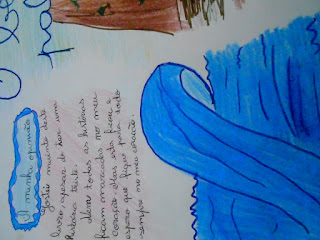 A minha opinião
Gostei muito deste
livro, apesar de ser uma
história triste.
Nem todas as histórias
ficam marcadas no meu
coração mas esta ficou e
espero que fique para todo
sempre no meu coração.